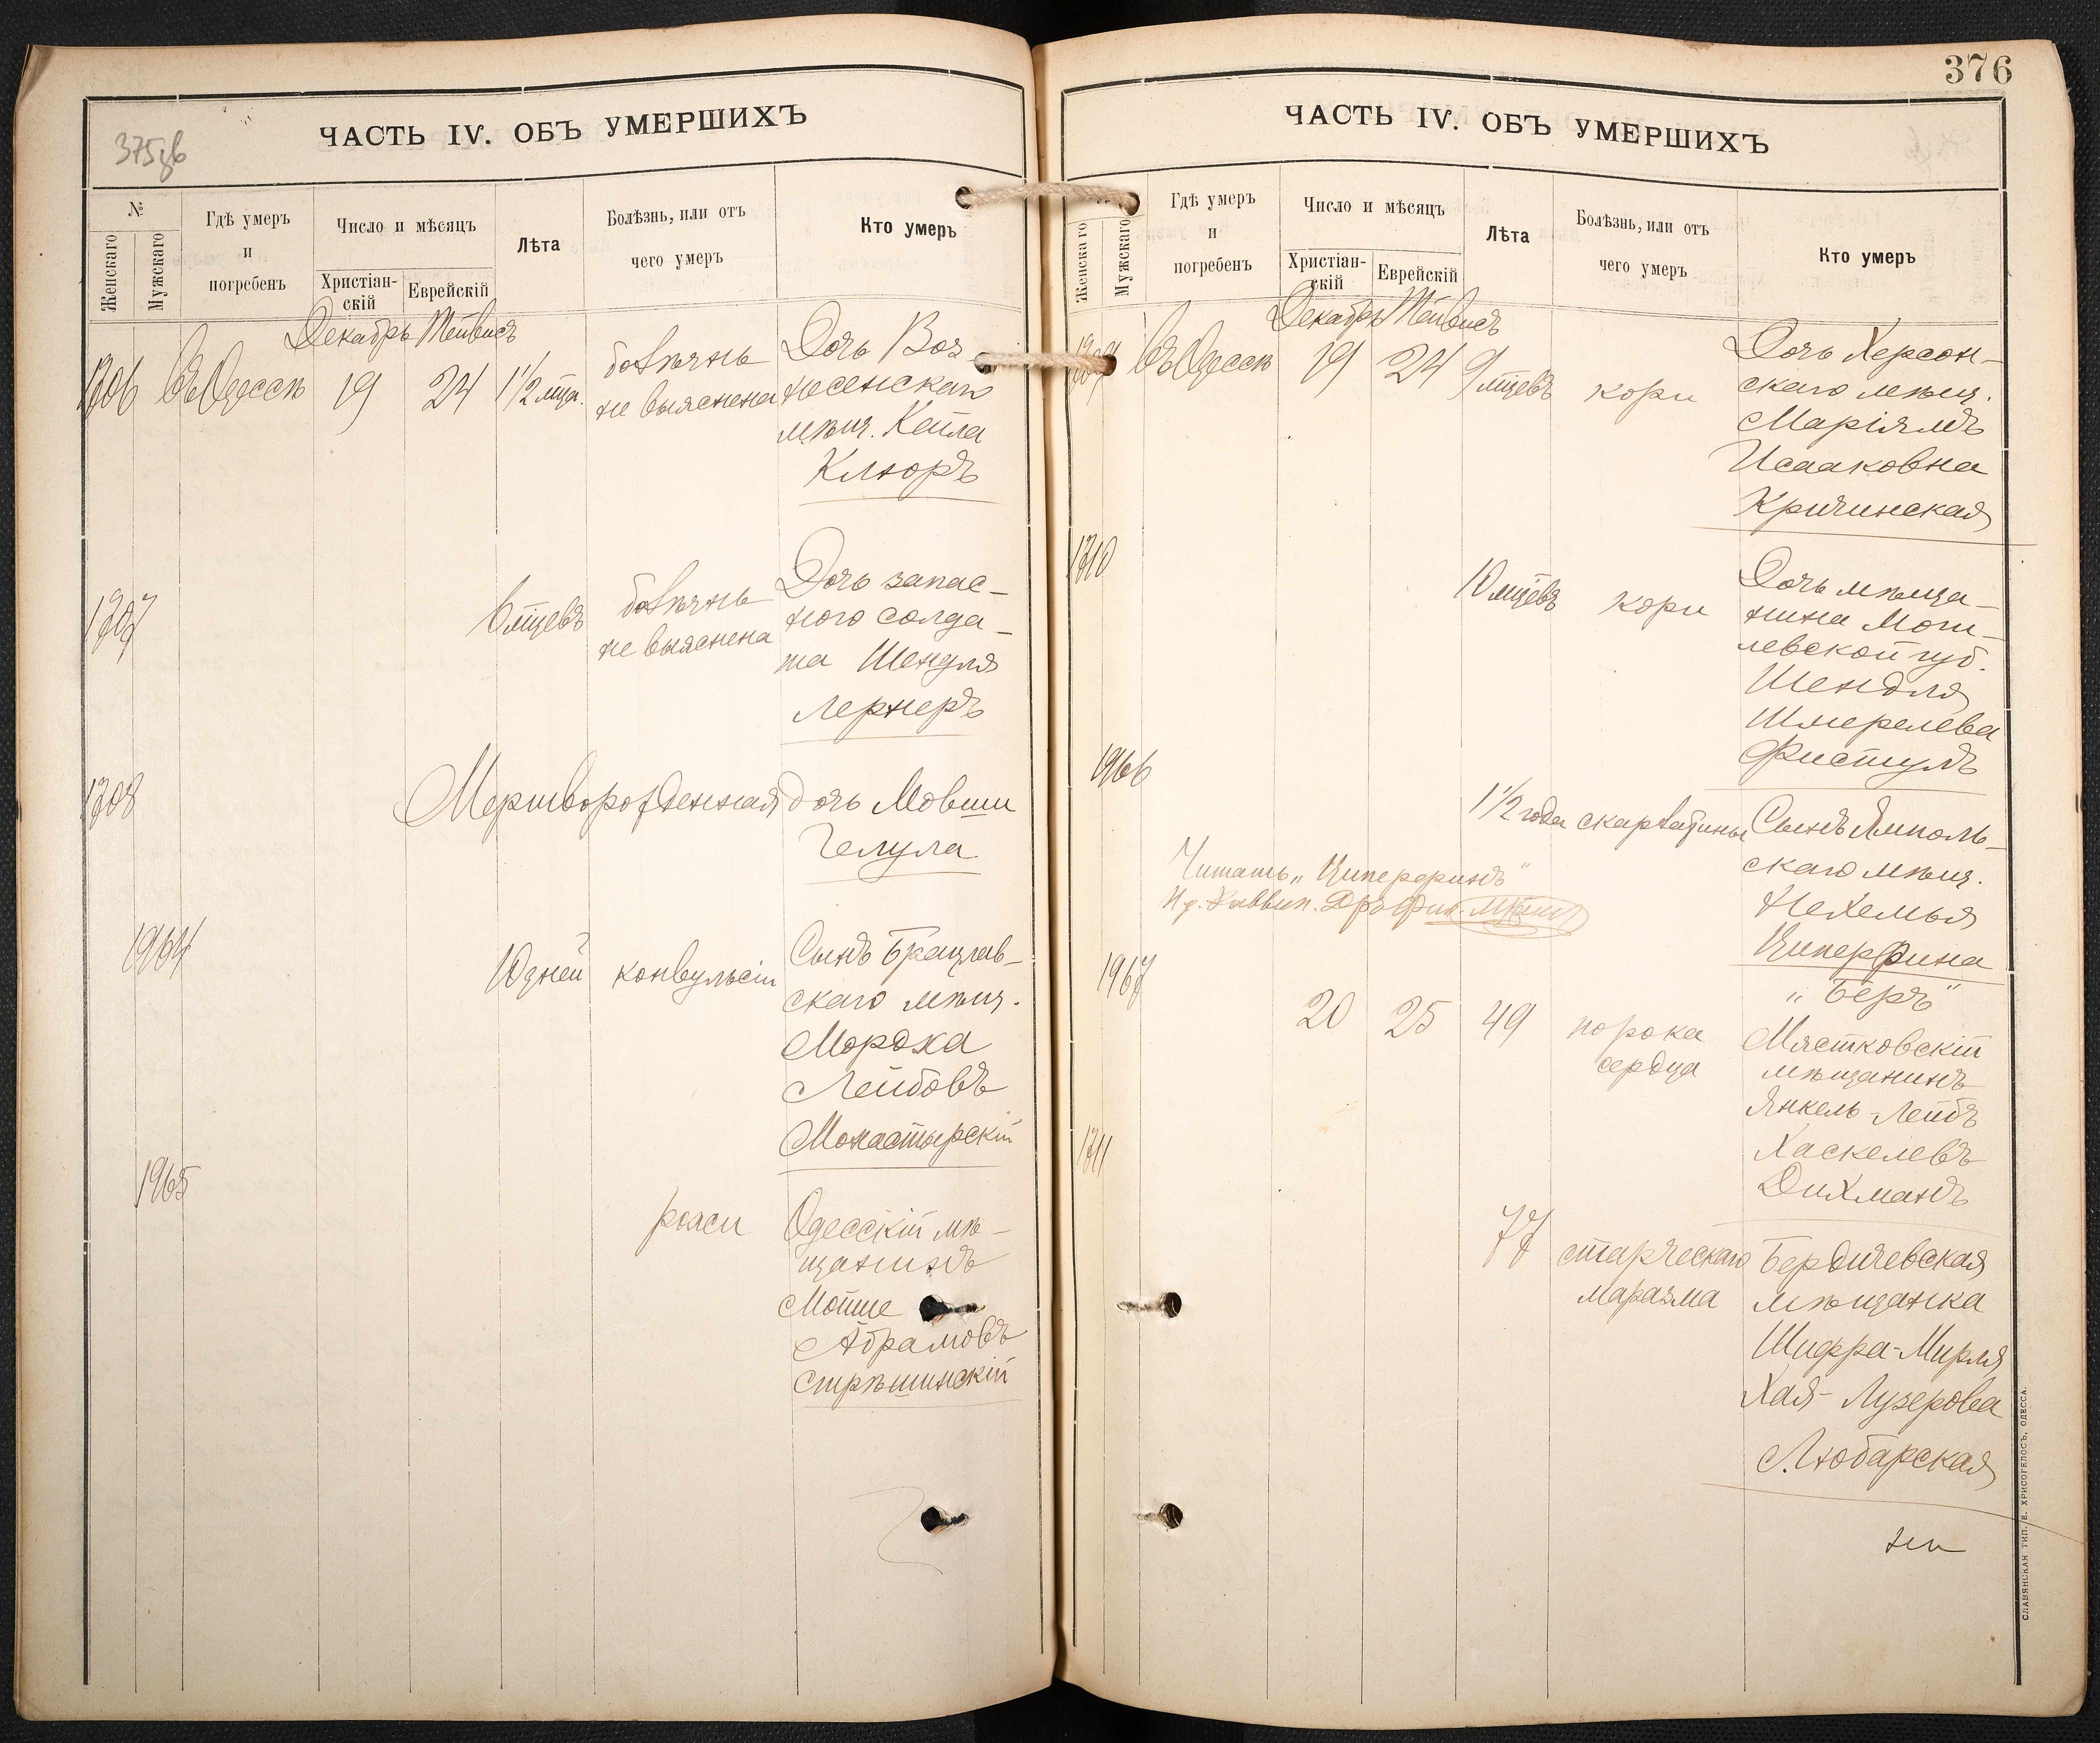 375зв
ЧАСТЬ IV. ОБЪ УМЕРШИХЪ
№
Женскаго
Мужскаго
Гдѣ умеръ
и
погребенъ
Число и мѣсяцъ
Христіан-
скій
Еврейскій
Лѣта
Болѣзнь, или отъ
чего умеръ
Кто умеръ
Декабрь Тейвисъ
1306 Въ Одессѣ 19 24 1 1/2 мца.
болѣзнь
не выяснена
Дочь Воз-
несенскаго
мѣщ. Кейла
Клюръ
1307
6 мцевъ
болѣзнь
не выяснена
Дочь запас-
ного солда-
та Шендля
Лернеръ
1308
Мертворожденная дочь Мовши
Гелула
1964
10 дней конвульсіи
Сынъ Брацлав-
скаго мѣщ.
Мордха
Лейбовъ
Монастырскій
1965
рожи
Одесскій мѣ-
щанинъ
Мойше
Абрамовъ
Стрѣшинскій
376
ЧАСТЬ IV. ОБЪ УМЕРШИХЪ
Женскаго
Мужскаго
Гдѣ умеръ
и
погребенъ
Число и мѣсяцъ
Христіан-
скій
Еврейскій
Лѣта
Болѣзнь, или отъ
чего умеръ
Кто умеръ
Декабрь Тейвисъ
1309 Въ Одессѣ 19 24 9 мцевъ кори
Дочь Херсон-
скаго мѣщ.
Маріямъ
Исааковна
Кричинская
1310
10 мцевъ кори
Дочь мѣща-
нина Моги-
левской губ.
Шендля
Шмерелева
Фистулъ
1966
1 1/2 года скарлатины
Сынъ Ямполь-
скаго мѣщ.
Нехемья
Ципперфина
Читать „Циперфинъ“
1967
„Беръ“
20 25 49 порока
сердца
Мястковскій
мѣщанинъ
Янкель-Лейбъ
Хаскелевъ
Дихманъ
1311
77 старческаго
маразма
Бердичевская
мѣщанка
Шифра-Мирля
Хая-Лузерова
Любарская
СЛАВЯНСКАЯ ТИП. Е. ХРИСОГЕЛОСЪ, ОДЕССА.